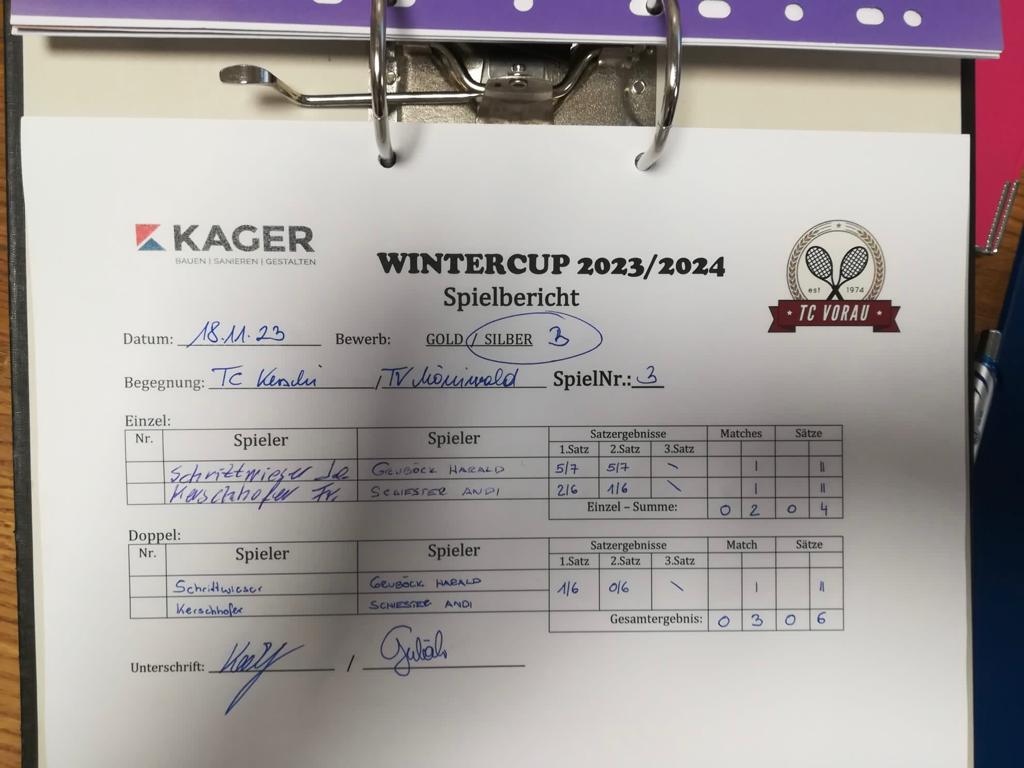 KAGER
BAUEN | SANIEREN | GESTALTEN
WINTERCUP 2023/2024
Spielbericht
est 1974
TC VORAU
Datum: 18.11.23 Bewerb: GOLD / SILBER B
Begegnung: TC Kerschi / TV Mönichwald SpielNr.: 3
Einzel:
Nr. Spieler Spieler Satzergebnisse Matches Sätze
1.Satz 2.Satz 3.Satz
Schrittwieser GRUBÖCK HARALD 5/7 5/7 \ | ||
Kerschhofer Fr. SCHIESTER ANDI 2/6 1/6 \ | ||
Einzel – Summe: 0 2 0 4
Doppel:
Nr. Spieler Spieler Satzergebnisse Match Sätze
1.Satz 2.Satz 3.Satz
Schrittwieser GRUBÖCK HARALD 1/6 0/6 \ | ||
Kerschhofer SCHIESTER ANDI
Gesamtergebnis: 0 3 0 6
Unterschrift: /